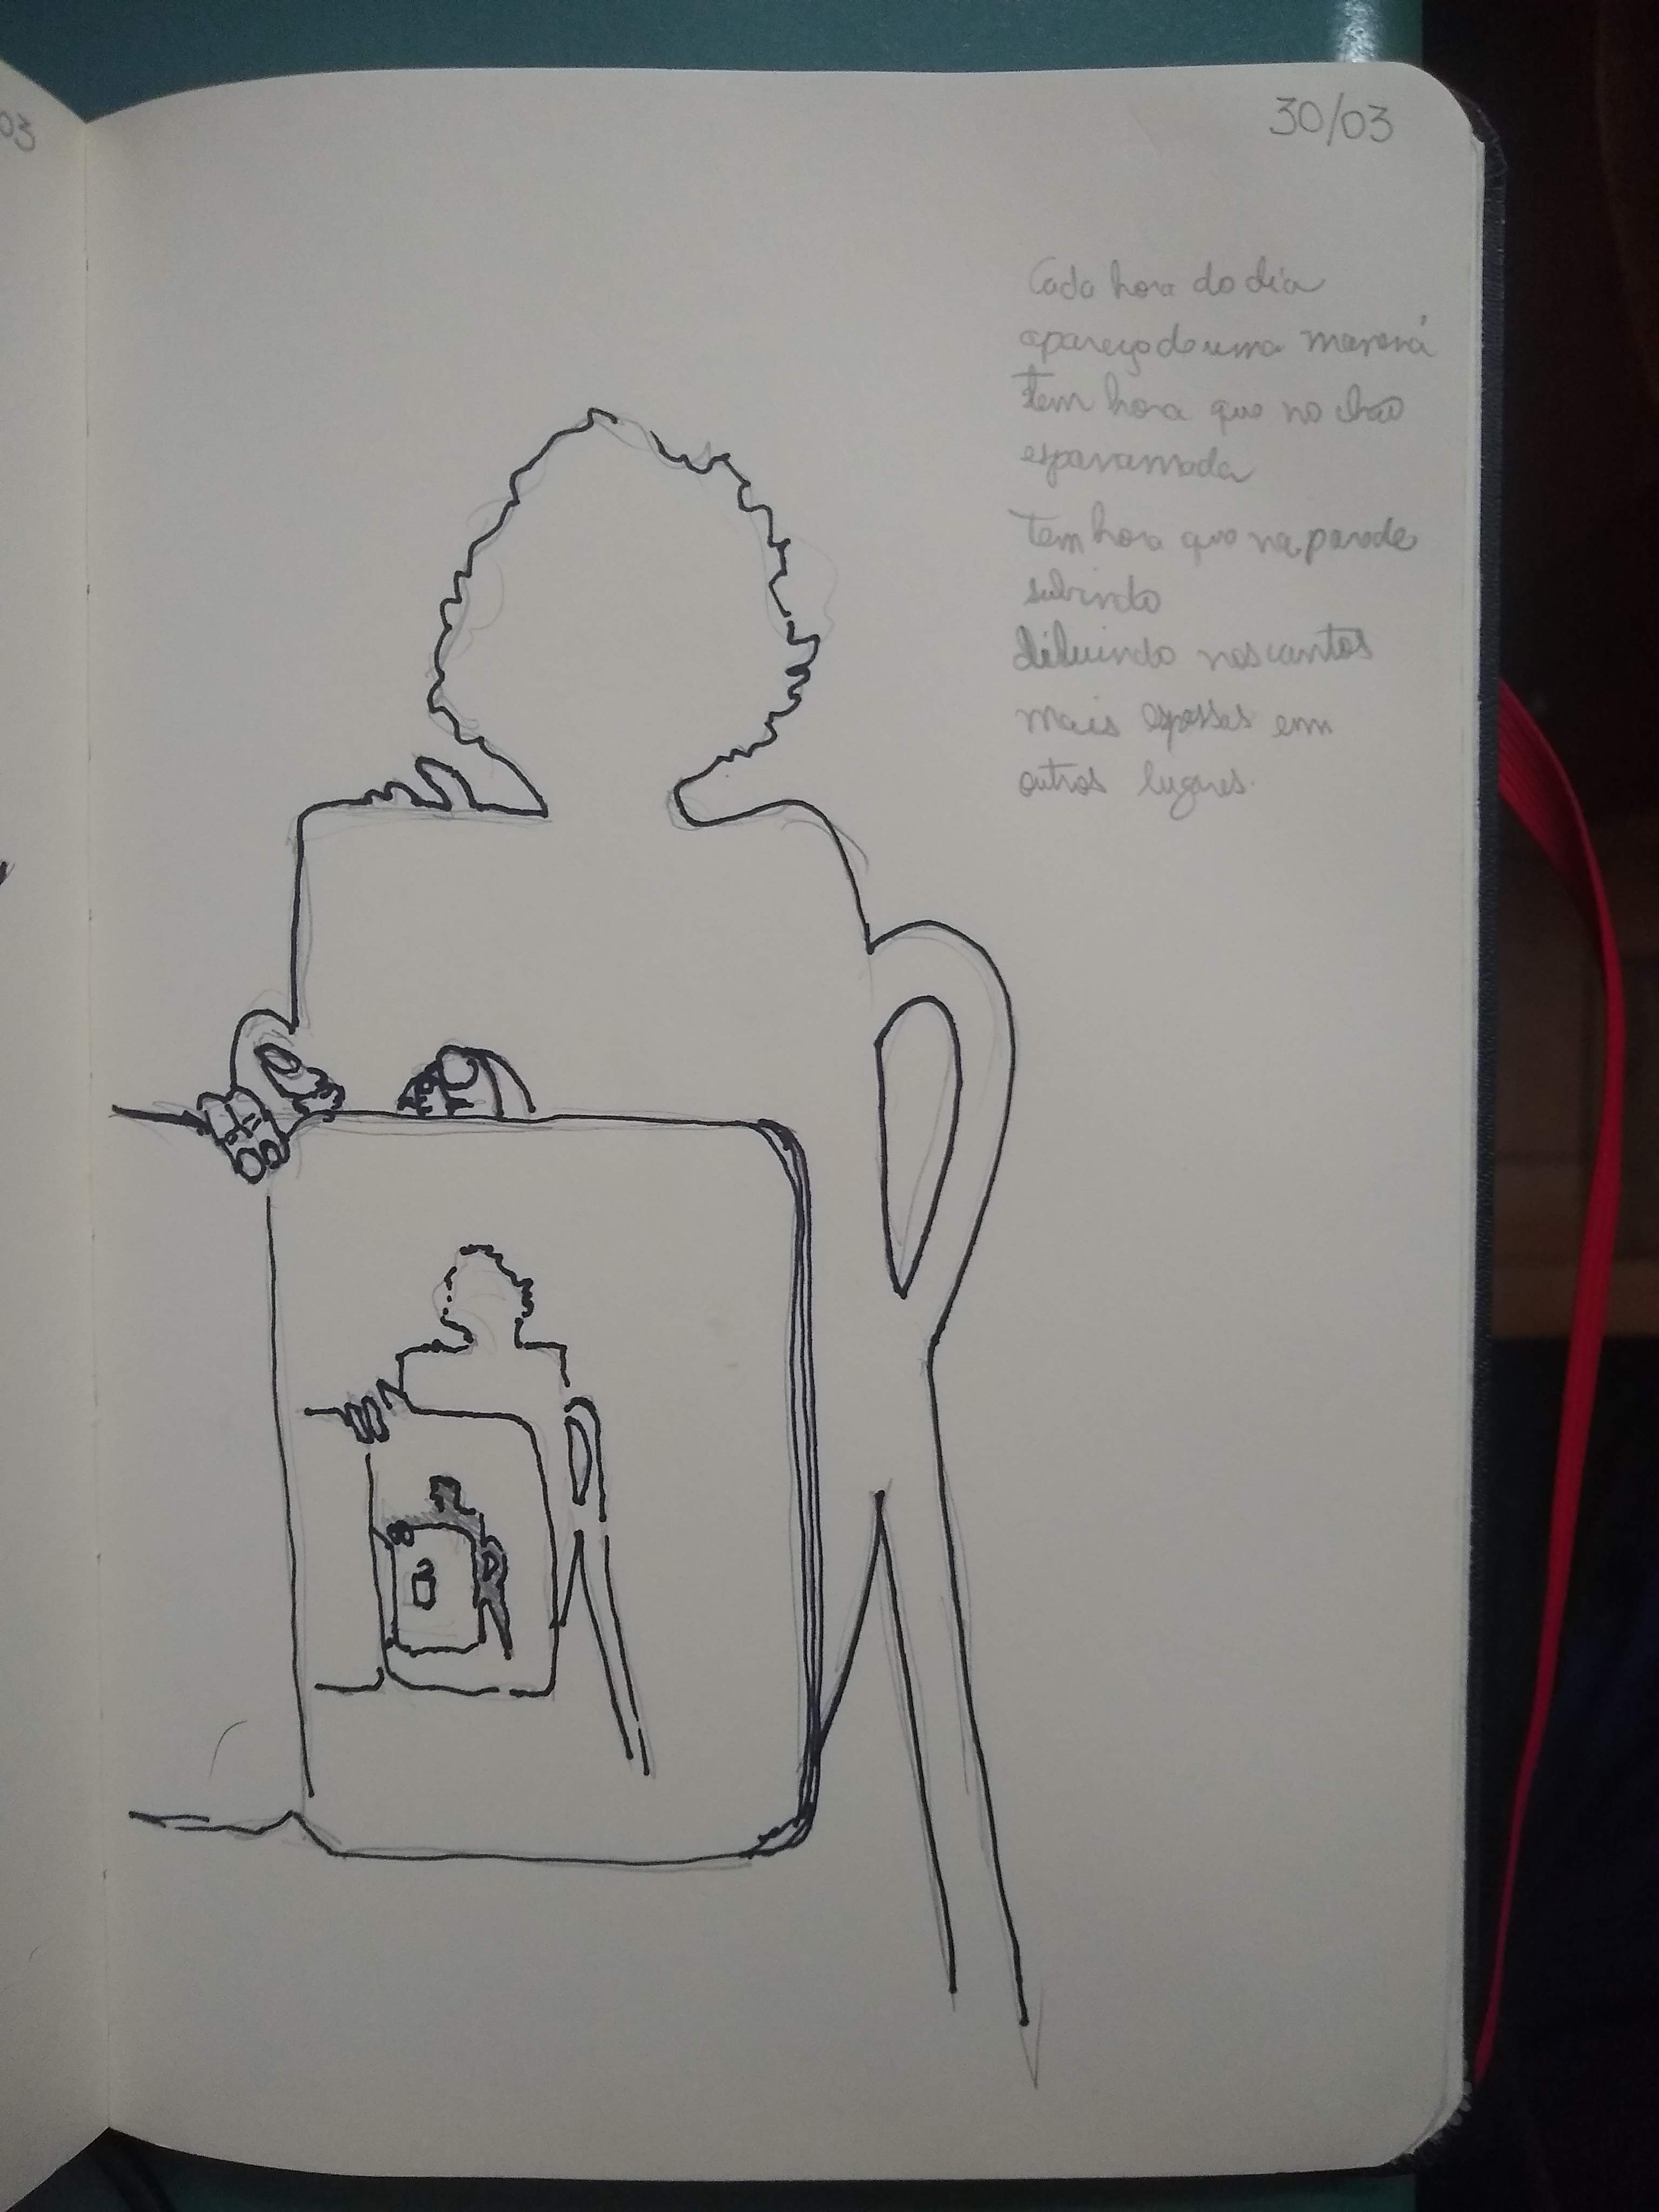 03
30/03
Cada hora do dia
apareço de uma maneira
tem hora que no chão
esparramada
tem hora que na parede
subindo
diluindo nos cantos
mais espessas em
outros lugares.